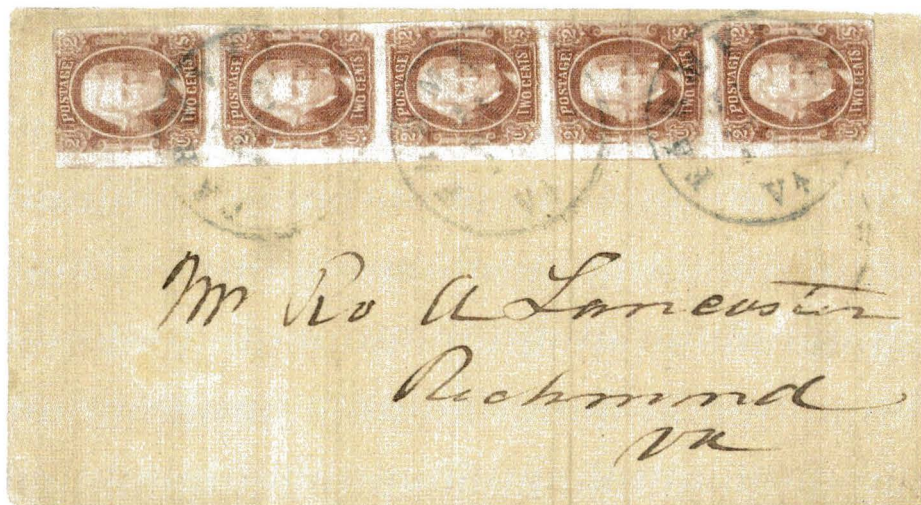 POSTAGE TWO CENTS POSTAGE TWO CENTS POSTAGE TWO CENTS POSTAGE TWO CENTS POSTAGE TWO CENTS
VA VA VA
Mr Ro A Lancaster
Richmond
Va